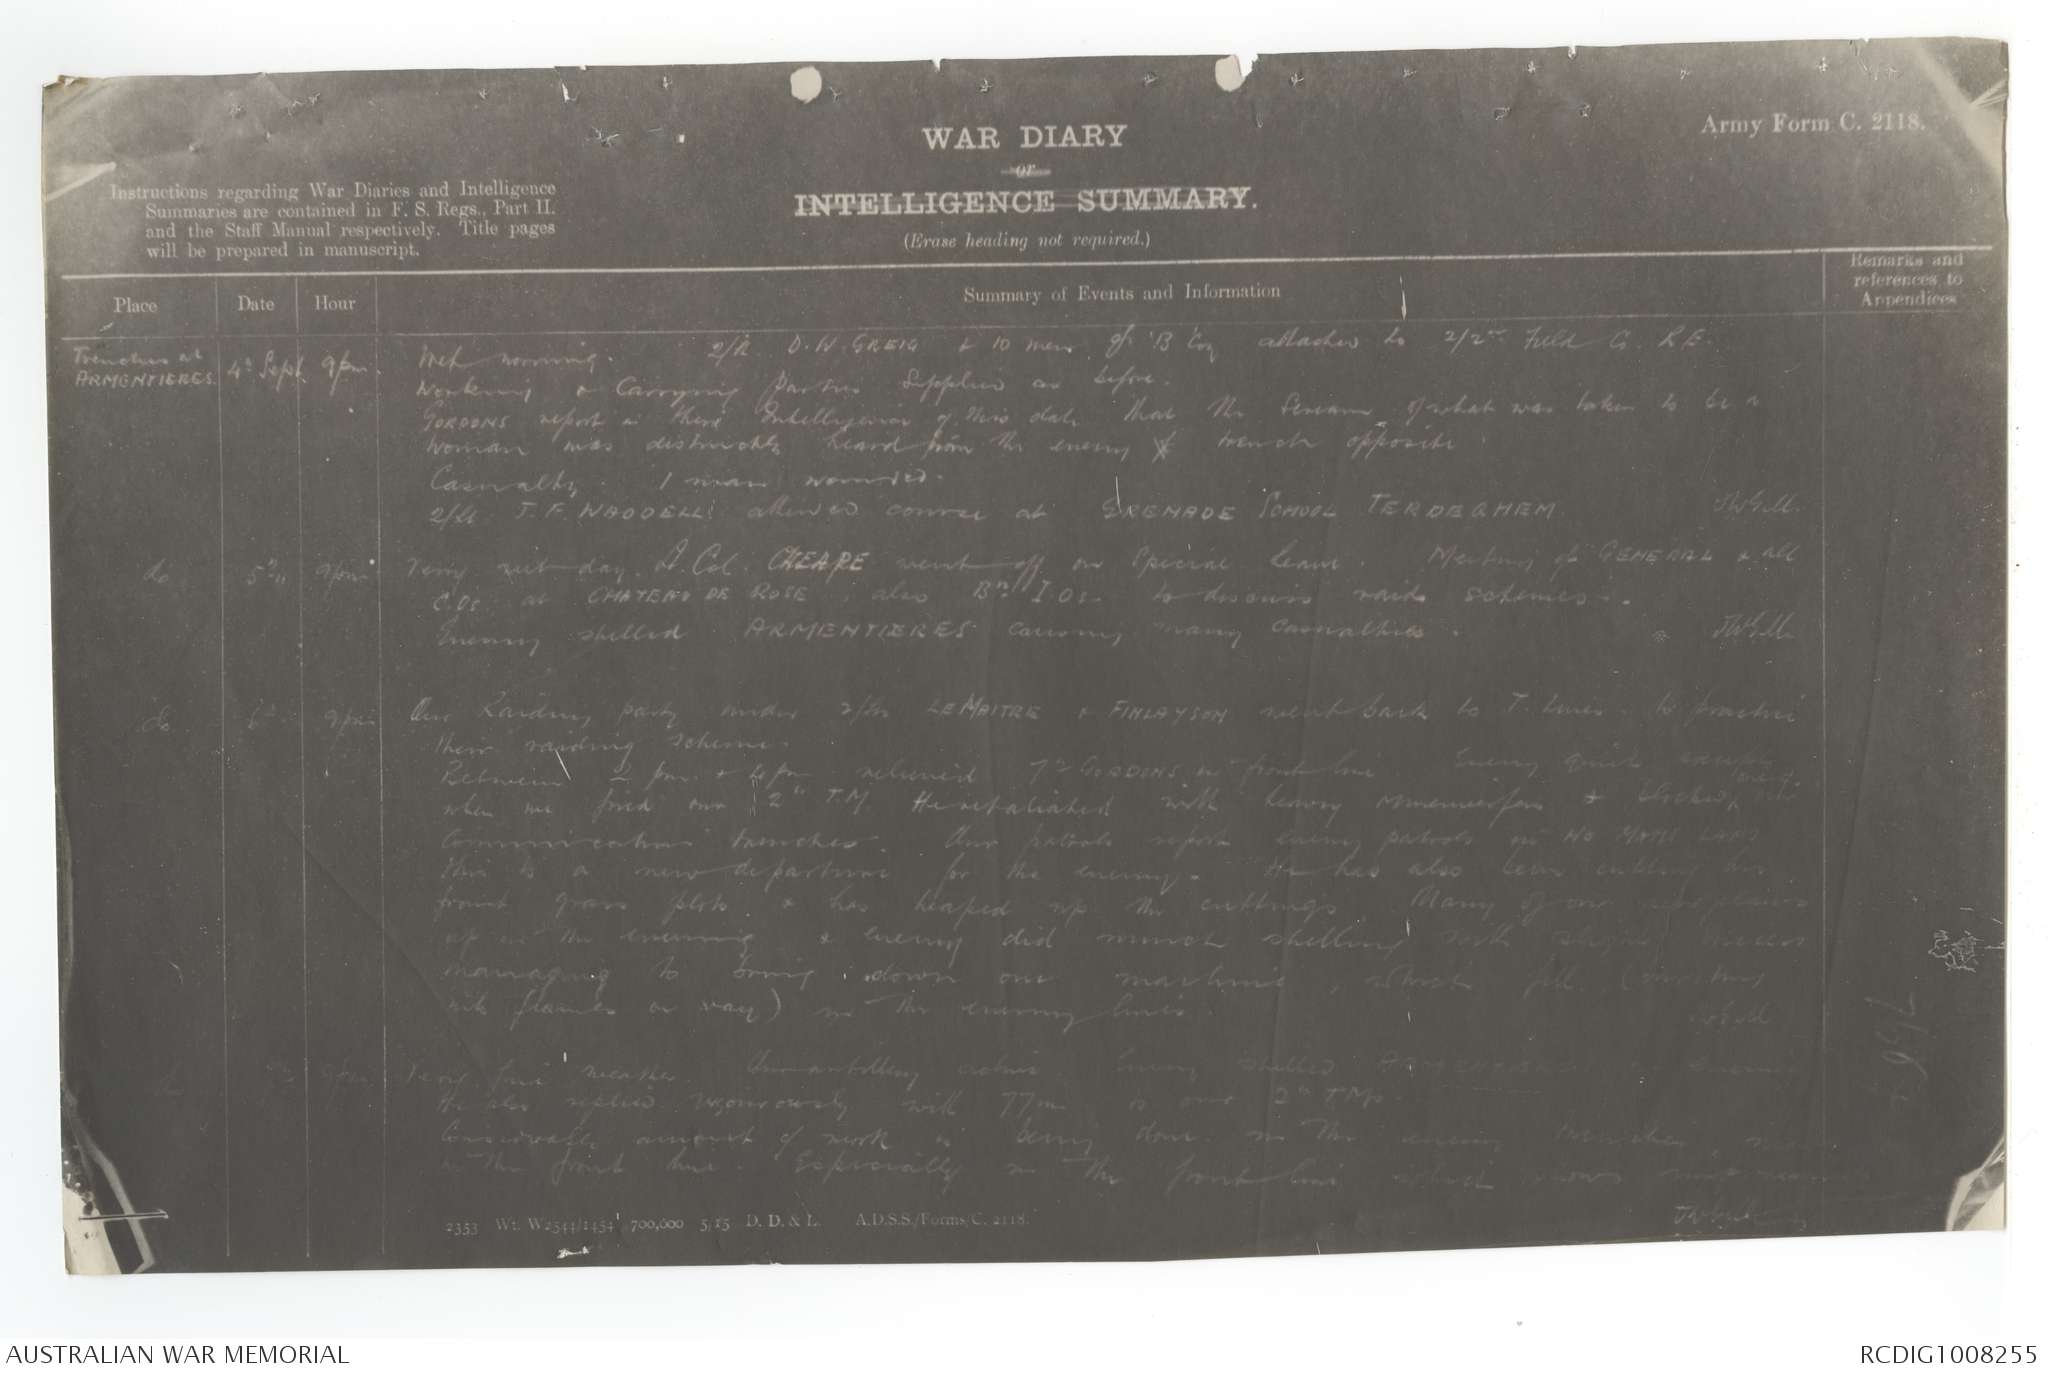 Army Form C. 2118.
WAR DIARY
or
INTELLIGENCE SUMMARY.
(Erase heading not required.)
Instructions regarding War Diaries and Intelligence
Summaries are contained in F. S. Regs., Part II.
and the Staff Manual respectively. Title pages
will be prepared in manuscript.
Place Date Hour Summary of Events and Information Remarks and
references to
Appendices
Trenches at
ARMENTIERES. 4th Sept. 9pm. Wet morning. 2/Lt D. H. GREIG & 10 men of B Coy attached to 2/2nd Field Co R.E.
Working & Carrying Parties supplied as before.
GORDONS report in their Intelligence of this date that the scream of what was taken to be a
woman was distinctly heard from the enemy trench opposite.
Casualty. 1 man wounded.
2/Lt. J. F. WADDELL attended course at GRENADE SCHOOL TERDEGHEM.
do 5th 9pm Very wet day. Lt. Col. CHEAPE went off on Special leave. Meeting of GENERAL & all
C.Os. at CHATEAU DE ROSE, also Bn I.Os. to discuss raid schemes.
Enemy shelled ARMENTIERES causing many casualties.
do 6th 9pm Our Raiding party under 2/Lts LEMAITRE & FINLAYSON went back to T. lines to practice
their raiding scheme.
Between 2 pm & 4 pm relieved 7th GORDONS in front line. Enemy quiet except
when we fired our 2" T.M. He retaliated with heavy minenwerfer & blocked
communication trenches. Our patrols report enemy patrols in NO MANS LAND
This is a new departure for the enemy. He has also been cutting his
front grass plots & has heaped up the cuttings. Many of our aeroplanes
up in the evening & enemy did much shelling with slight success
managing to bring down one machine, which fell
in flames on way) in the enemy lines.
9pm Very fine weather. Our artillery active. Enemy shelled ARMENTIERES in evening
He also replied vigorously with 77m to our 2" TMs.
Considerable amount of work is being done in the enemy trenches
in the front line. Especially in the front line which
2353 Wt. W2544/1454 700,000 5/15 D. D. & L. A.D.S.S./Forms/C. 2118.
AUSTRALIAN WAR MEMORIAL
RCDIG1008255